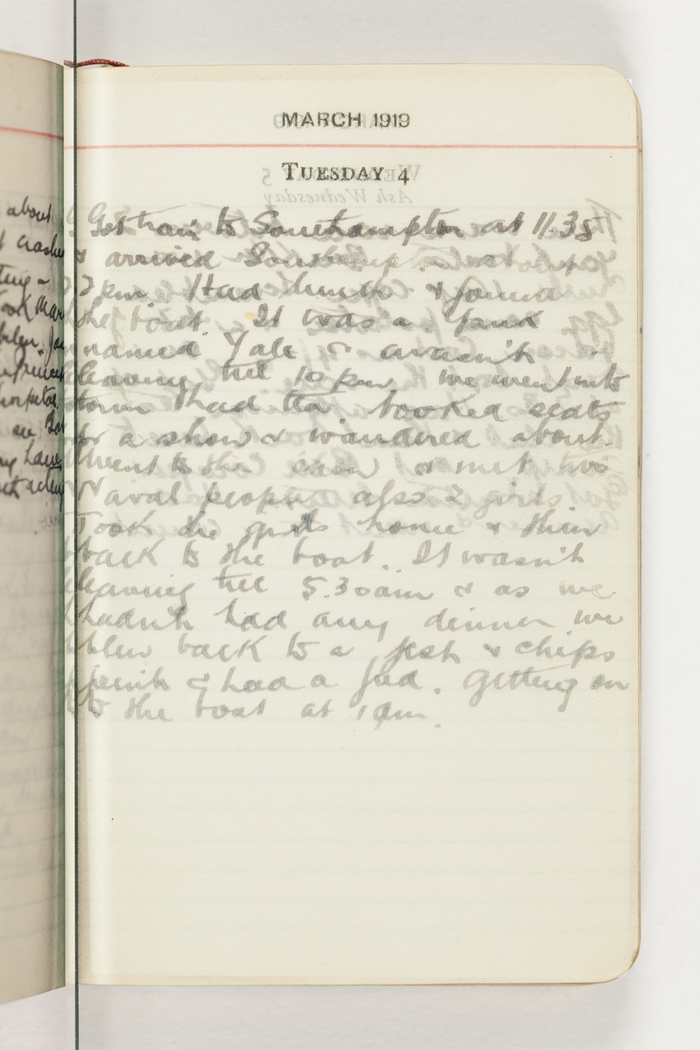 MARCH 1919
TUESDAY 4
Got train to Southampton at 11.35
& arrived
2 pm. Had lunch & found
the boat. It was a Yank
named Yale & wasn't
leaving till 10 pm, we went into
town had tea booked seats
for a show & wandered about.
Went to the show & met two
Naval people also 2 girls
Took the girls home & then
back to the boat. It wasn't
leaving till 5.30am & as we
hadn't had any dinner we
blew back to a fish & chips
& had a feed. Getting on
to the boat at 1am.
about